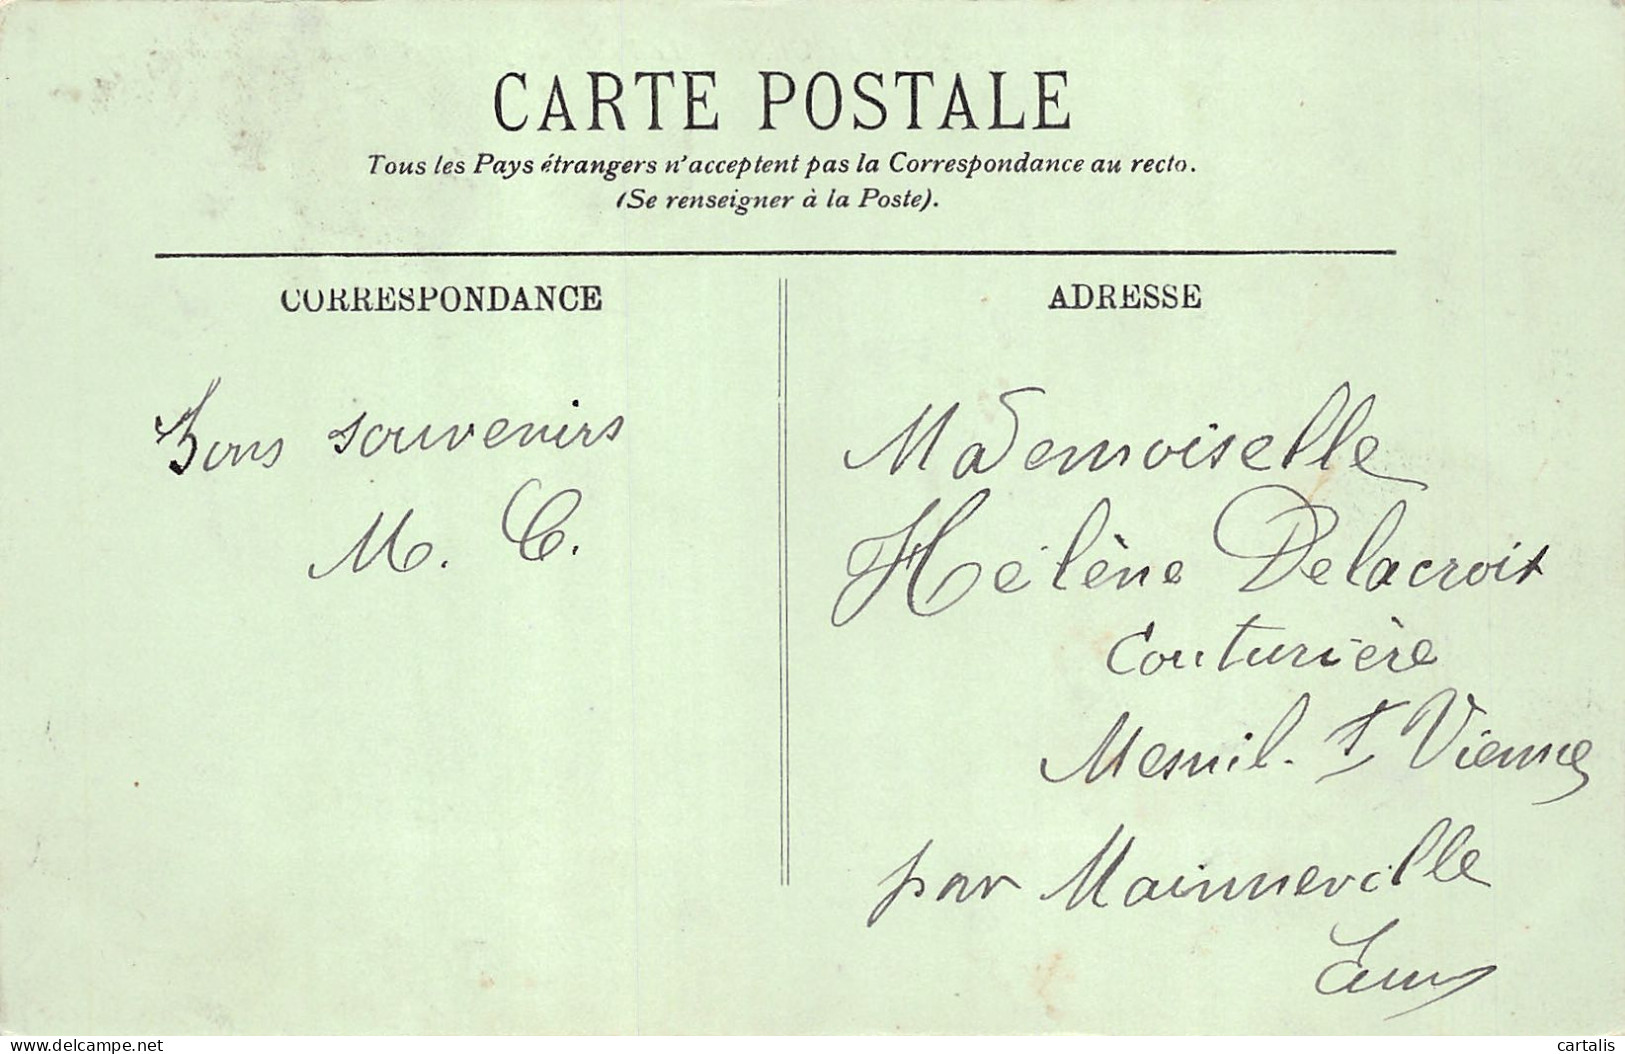 CARTE POSTALE
Tous les Pays étrangers n'acceptent pas la Correspondance au recto.
(Se renseigner à la Poste).
CORRESPONDANCE
ADRESSE
Bons souvenirs
M. C.
Mademoiselle
Hélène Delacroix
Couturière
Mesnil-St Vienne
par Mainneville
Eure
delcampe.net
cartalis